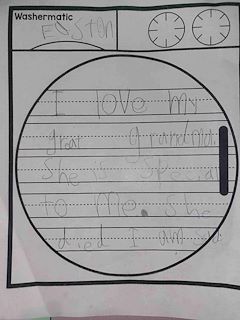 Washermatic
Easton
I love My
great grandmo
She is Special
to Me. She
died I am sad